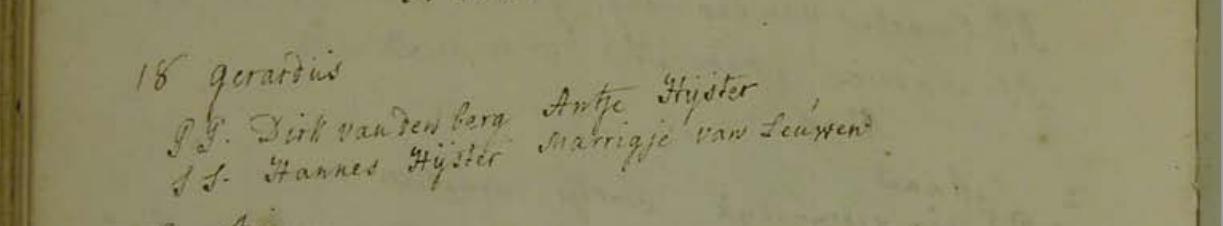 18 Gerardus
P P. Dirk van den berg Antje Hijster
S S. Hannes Hijster Marrigje van Leúwen